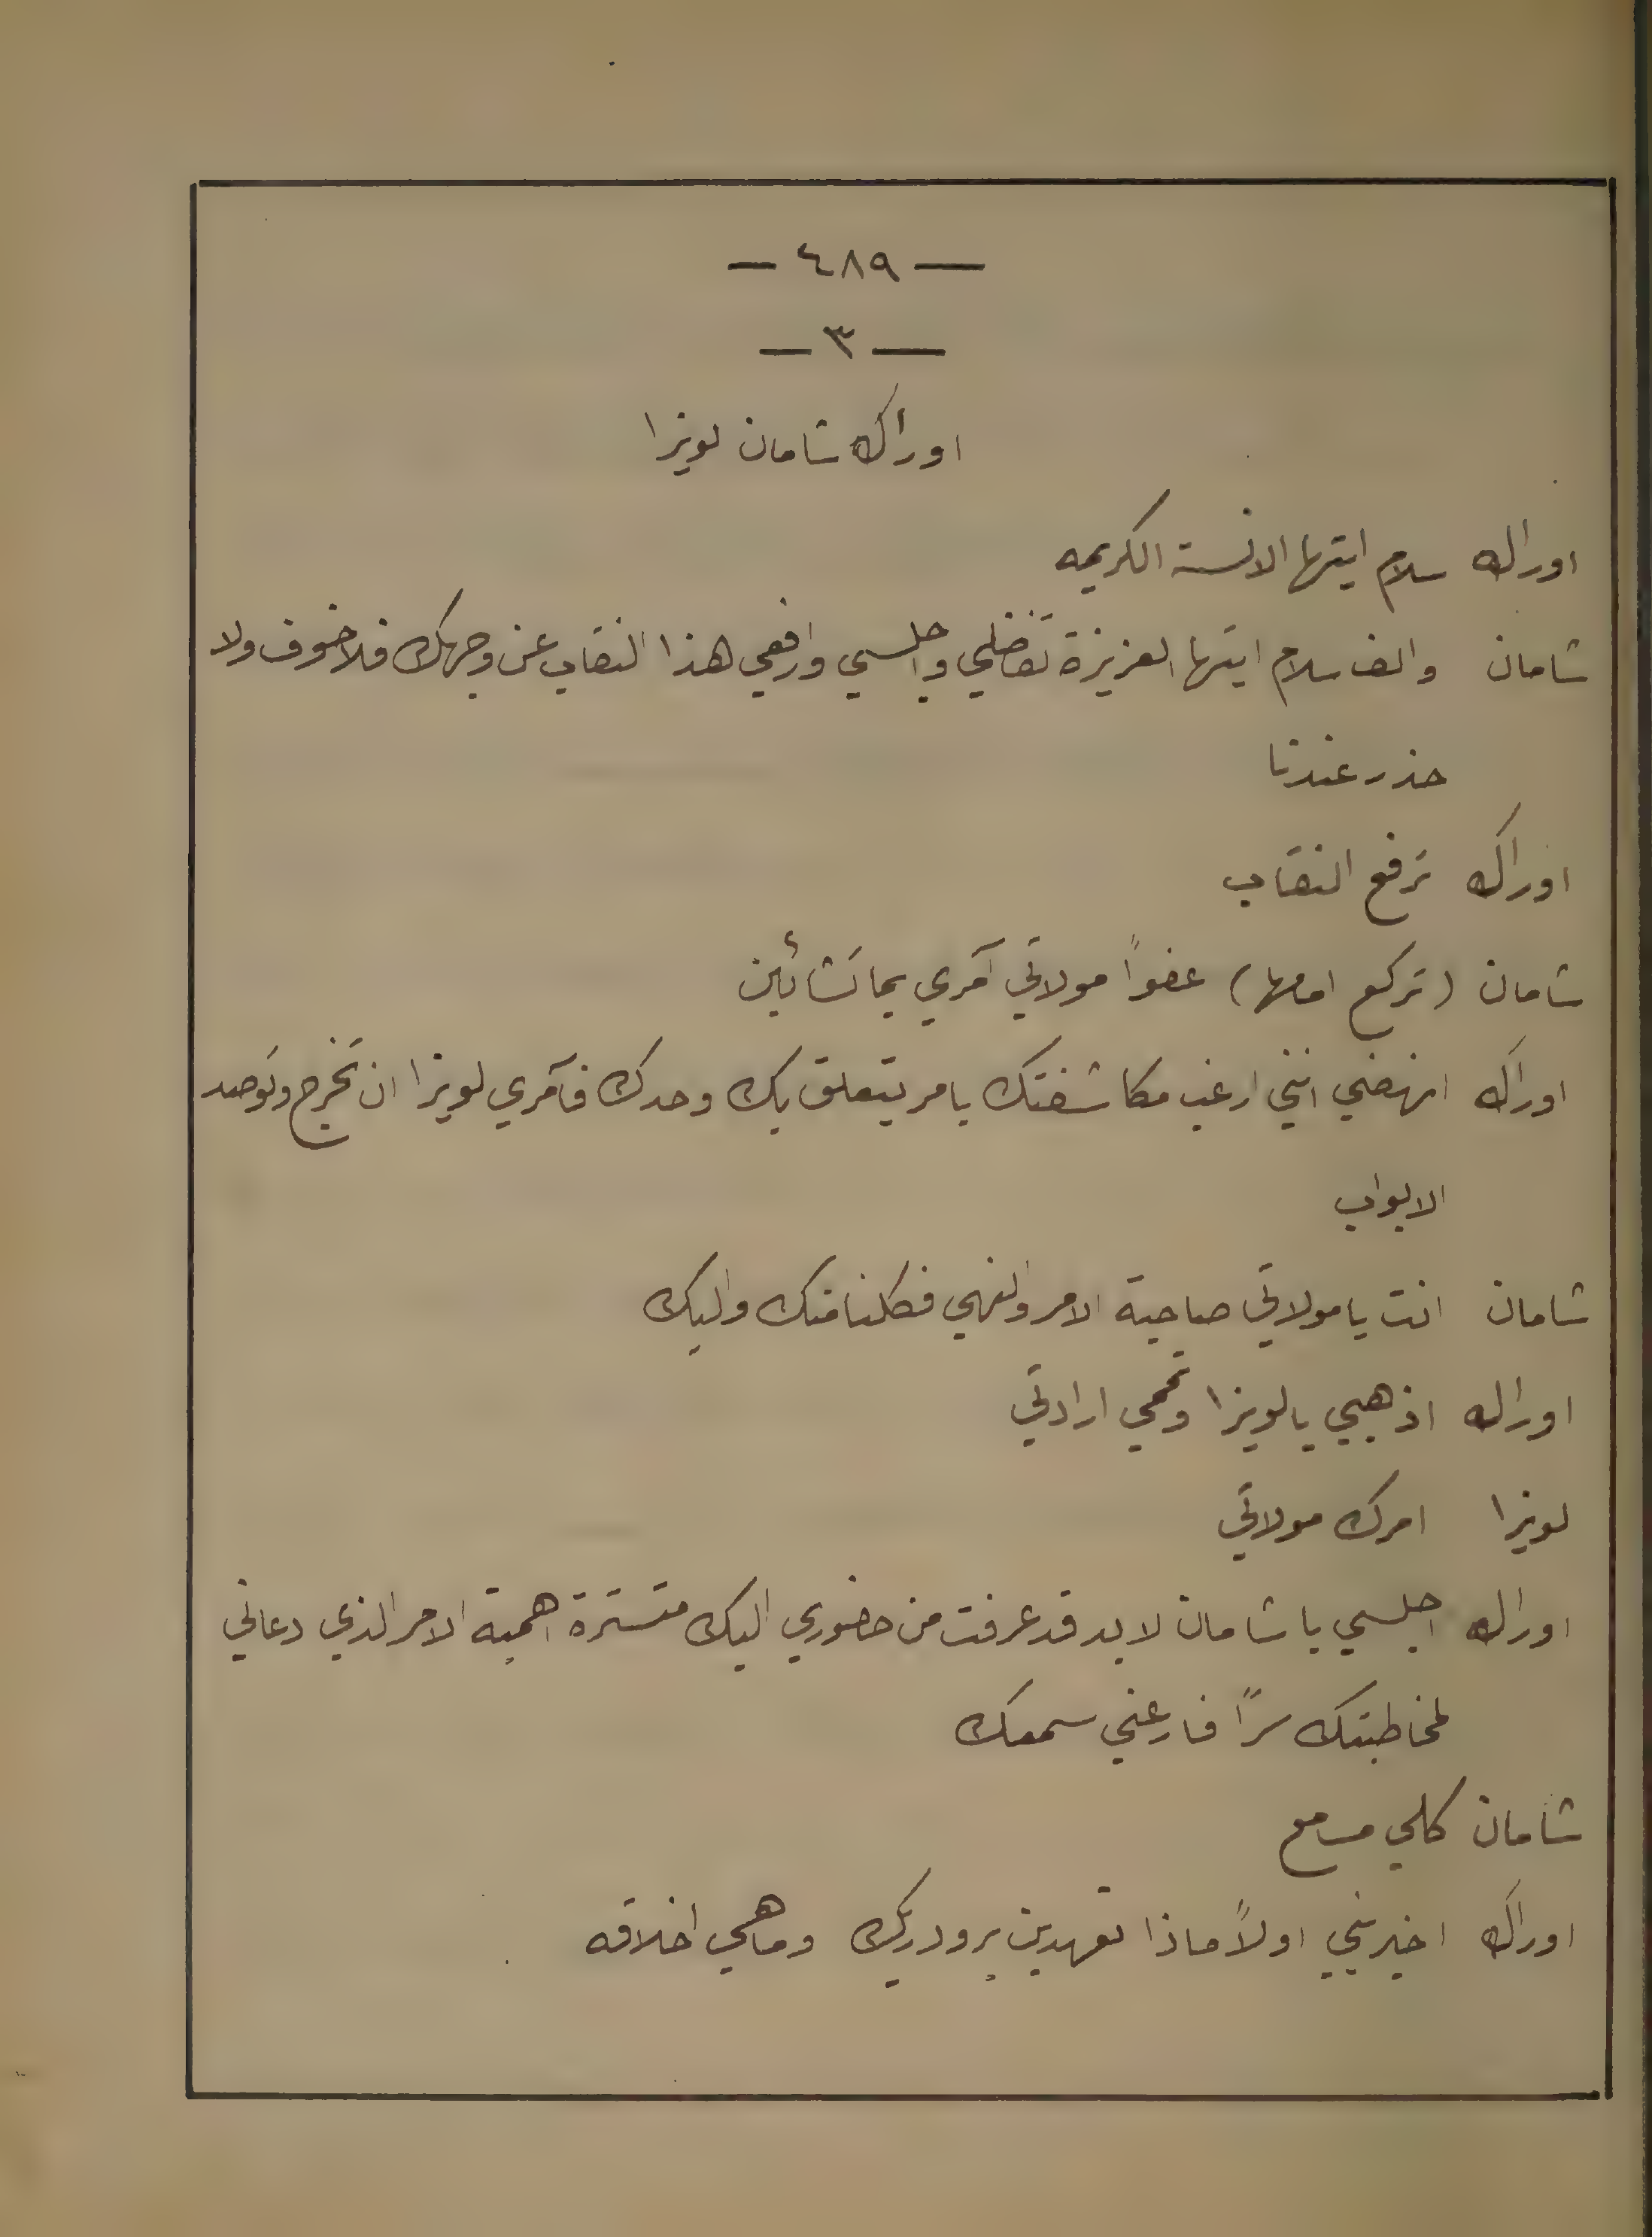 — ٤٨٩ —
— ٣ —
اوراك شامان لويزا
اوراك سلام ايتها الانسة الكريمه
شامان والف سلام ايتها العزيزة تفضلي واجلسي وارفعي هذا النقاب عن وجهك فلا خوف ولا
حذر عندنا
اوراك ترفع النقاب
شامان (تركع امامها) عفواً مولاتي آمري بما تشائين
اوراك انهضي انني ارغب مكاشفتك بامر يتعلق بك وحدك فآمري لويزا ان تخرج وتوصد
الابواب
شامان انت يا مولاتي صاحبة الامر والنهي فكلنا منك واليك
اوراك اذهبي يا لويزا وتممي ارادتي
لويزا امرك مولاتي
اوراك اجلسي يا شامان لا بد قد عرفت من حضوري اليك متسترة اهمية الامر الذي دعاني
لمخاطبتك سراً فارعني سمعك
شامان كلي مسامع
اوراك اخبريني اولاً ماذا تعهدين برودريك وما هي اخلاقه